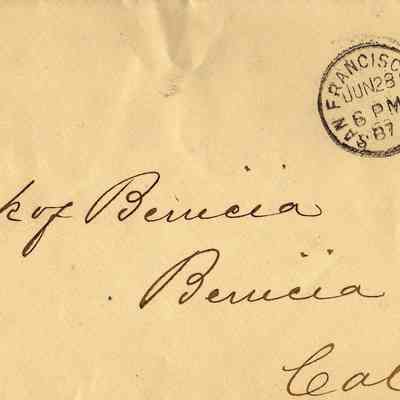 SAN FRANCISC
JUN 28
6 PM
87
k of Benicia
Benicia
Cal